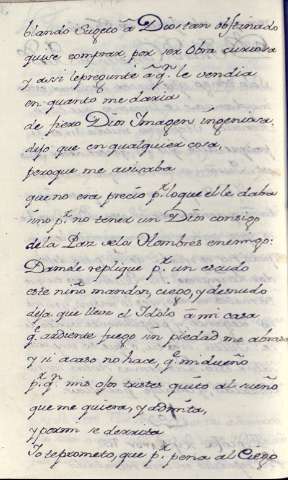 blando Sugeto â Dios tan obstinado
quise comprar, por ser Obra curiosa
y assi le pregunte â qn le vendia
en quanto me daria
de fiero Dios Imagen ingeniosa,
dijo que en qualquier cosa,
pero que me avisaba
que no era precio pr lo que el le daba
sino pr no tener un Dios consigo
de la Paz de los Hombres enemigo:
Damele replique pr un escudo
este niño mandon, ciego, y desnudo
deja que lleve el Idolo a mi casa
qe ardiente fuego sin piedad me abrasa
y si acaso no hace, qe mi dueño
pr qn mis ojos tristes quito al sueño
que me quiera, y admita,
y por mi se derrita
Yo te prometo, que pr pena al Ciego